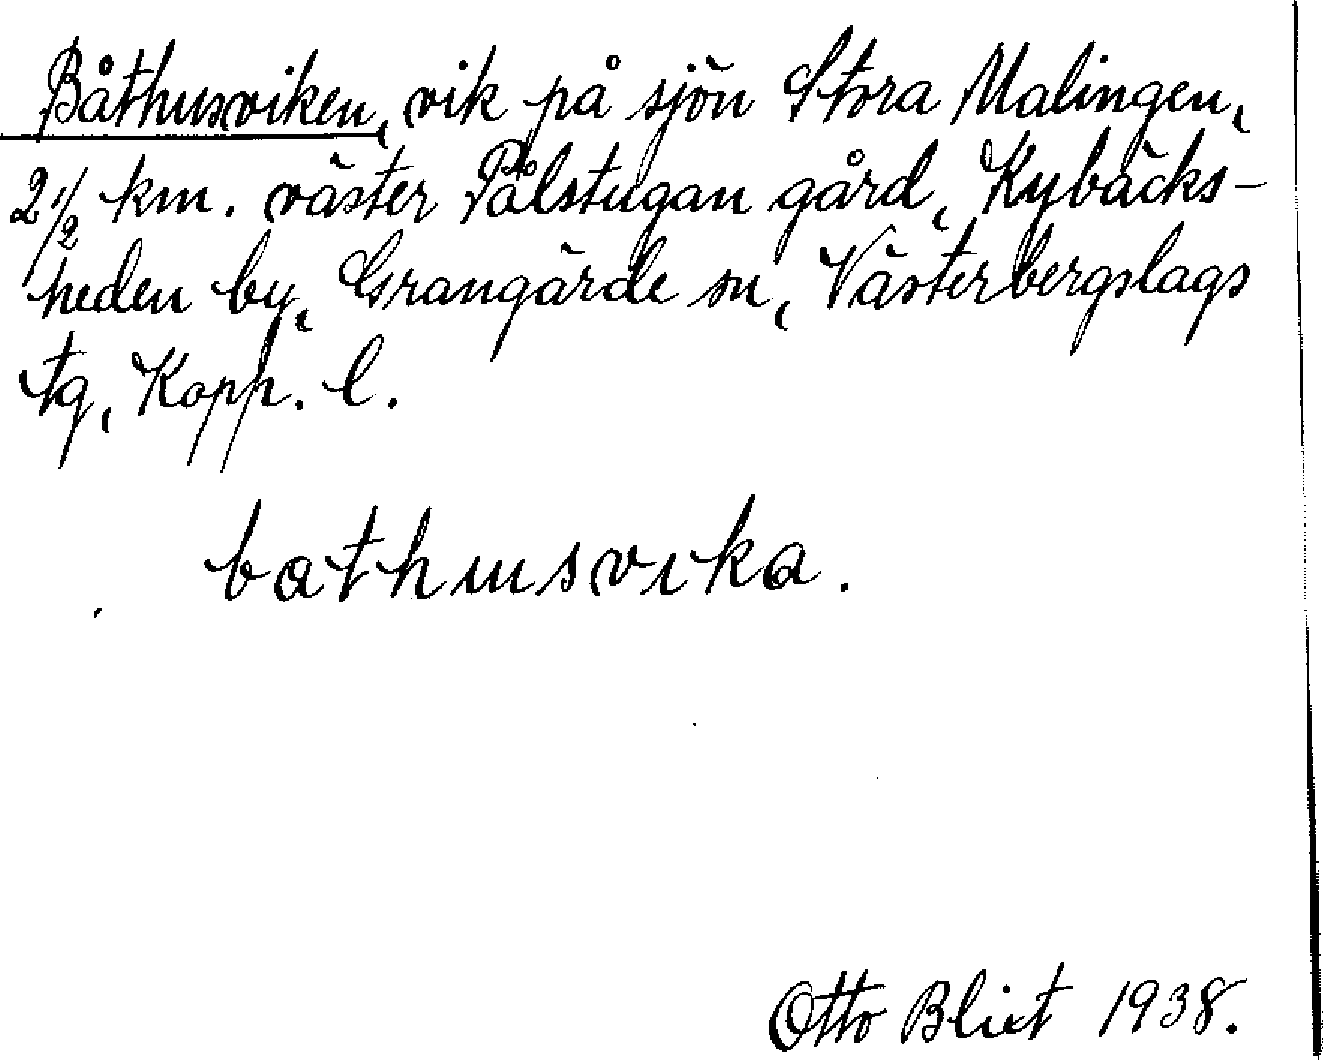 Båthusviken, vik på sjön Stora Malingen,
2 1/2 km. väster Pålstugan gård, Kybäcks-
heden by, Grangärde sn, Västerbergslags
tg, Kopp. l.
bathusvika.
Otto Blixt 1938.